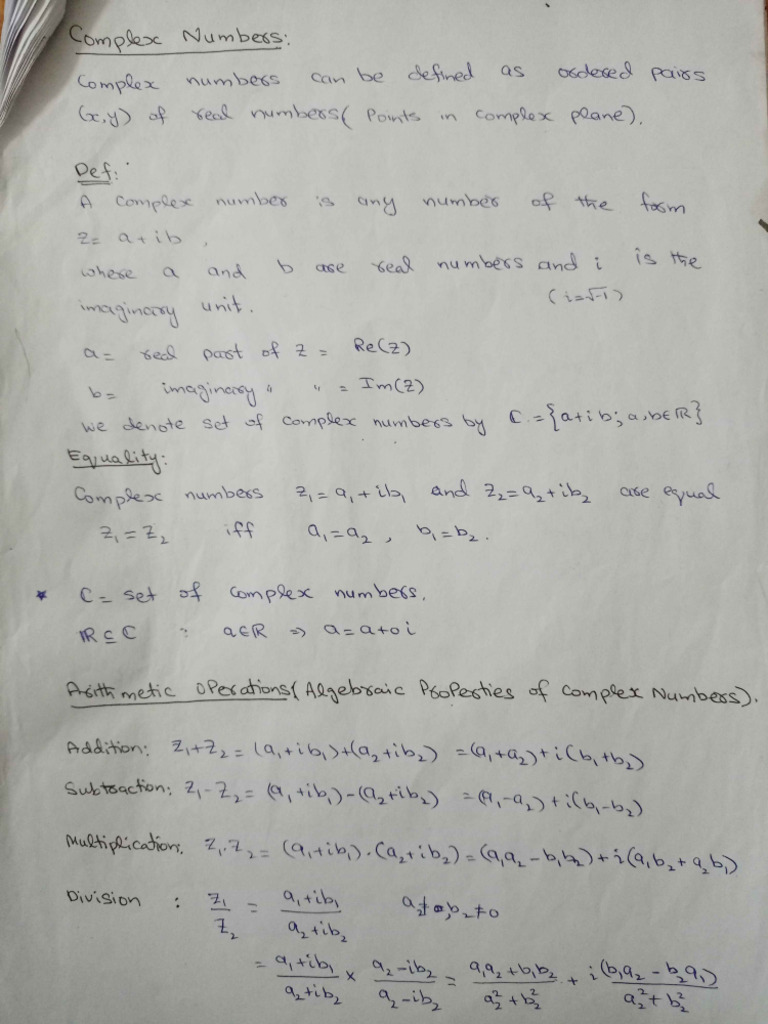 Complex Numbers:
Complex numbers can be defined as ordered pairs
(x,y) of real numbers( Points in complex plane).
Def:
A complex number is any number of the form
z = a+ib,
where a and b are real numbers and i is the
imaginary unit. (i=√-1)
a = real part of z = Re(z)
b = imaginary " " = Im(z)
we denote set of complex numbers by ℂ = {a+ib; a,b∈ℝ}
Equality:
Complex numbers z₁=a₁+ib₁ and z₂=a₂+ib₂ are equal
z₁=z₂ iff a₁=a₂, b₁=b₂.
* C = set of complex numbers.
ℝ⊆C ∵ a∈ℝ ⇒ a=a+0i
Arithmetic Operations(Algebraic Properties of complex Numbers).
Addition: z₁+z₂ = (a₁+ib₁)+(a₂+ib₂) = (a₁+a₂)+i(b₁+b₂)
Subtraction: z₁-z₂ = (a₁+ib₁)-(a₂+ib₂) = (a₁-a₂)+i(b₁-b₂)
Multiplication: z₁.z₂ = (a₁+ib₁).(a₂+ib₂) = (a₁a₂-b₁b₂)+i(a₁b₂+a₂b₁)
Division : z₁/z₂ = (a₁+ib₁)/(a₂+ib₂) a₂≠0, b₂≠0
= (a₁+ib₁)/(a₂+ib₂) × (a₂-ib₂)/(a₂-ib₂) = (a₁a₂+b₁b₂)/(a₂²+b₂²) + i(b₁a₂-b₂a₁)/(a₂²+b₂²)